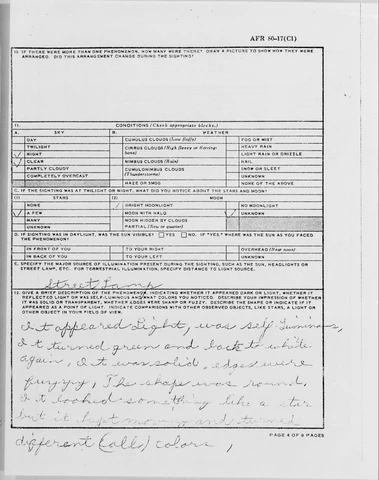 AFR 80-17(C1)
10. IF THERE WERE MORE THAN ONE PHENOMENON, HOW MANY WERE THERE? DRAW A PICTURE TO SHOW HOW THEY WERE
ARRANGED. DID THIS ARRANGEMENT CHANGE DURING THE SIGHTING?
11. CONDITIONS (Check appropriate blocks.)
A. SKY B. WEATHER
DAY CUMULUS CLOUDS (Low fluffy) FOG OR MIST
TWILIGHT CIRRUS CLOUDS (High fleecy or Herring- HEAVY RAIN
NIGHT bone) LIGHT RAIN OR DRIZZLE
CLEAR NIMBUS CLOUDS (Rain) HAIL
PARTLY CLOUDY CUMULONIMBUS CLOUDS SNOW OR SLEET
COMPLETELY OVERCAST (Thunderstorms) UNKNOWN
HAZE OR SMOG NONE OF THE ABOVE
C. IF THE SIGHTING WAS AT TWILIGHT OR NIGHT, WHAT DID YOU NOTICE ABOUT THE STARS AND MOON?
(1) STARS (2) MOON
NONE BRIGHT MOONLIGHT NO MOONLIGHT
A FEW MOON WITH HALO UNKNOWN
MANY MOON HIDDEN BY CLOUDS
UNKNOWN PARTIAL (New or quarter)
D. IF SIGHTING WAS IN DAYLIGHT, WAS THE SUN VISIBLE? YES NO. IF "YES," WHERE WAS THE SUN AS YOU FACED
THE PHENOMENON?
IN FRONT OF YOU TO YOUR RIGHT OVERHEAD (Near noon)
IN BACK OF YOU TO YOUR LEFT UNKNOWN
SPECIFY THE MAJOR SOURCE OF ILLUMINATION PRESENT DURING THE SIGHTING, SUCH AS THE SUN, HEADLIGHTS OR
STREET LAMP, ETC. FOR TERRESTRIAL ILLUMINATION, SPECIFY DISTANCE TO LIGHT SOURCE.
Street Lamp
12. GIVE A BRIEF DESCRIPTION OF THE PHENOMENON, INDICATING WHETHER IT APPEARED DARK OR LIGHT, WHETHER IT
REFLECTED LIGHT OR WAS SELF-LUMINOUS AND WHAT COLORS YOU NOTICED. DESCRIBE YOUR IMPRESSION OF WHETHER
IT WAS SOLID OR TRANSPARENT, WHETHER EDGES WERE SHARP OR FUZZY. DESCRIBE THE SHAPE OR INDICATE IF IT
APPEARED AS A POINT OF LIGHT. INDICATE COMPARISONS WITH OTHER OBSERVED OBJECTS, LIKE STARS, A LIGHT OR
OTHER OBJECT IN YOUR FIELD OF VIEW.
It appeared Light, was self luminous,
It turned green and back to white
again, It was solid, edges were
fuzzy, The shape was round,
It looked something like a star
but it kept moving and turned
PAGE 4 OF 9 PAGES
different (all) colors,